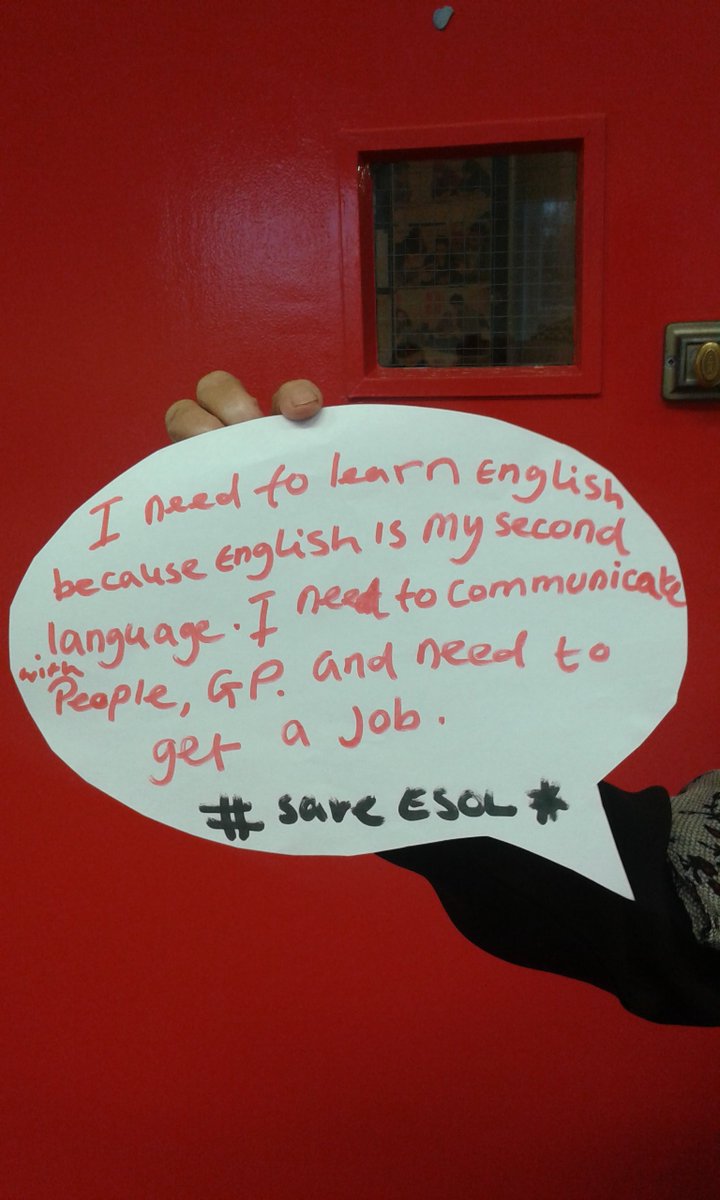 I need to learn English
because English is my second
language. I need to communicate
with People, GP. and need to
get a Job.
# save ESOL *